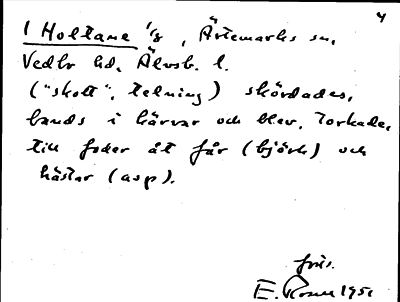 4
I Holtane 1/8, Ärtemarks sn,
Vedbo hd, Älvsb. l.
("skott", telning) skördades,
bands i kärvar och blev, torkade,
till foder åt får (björk) och
hästar (asp).
E. 1951